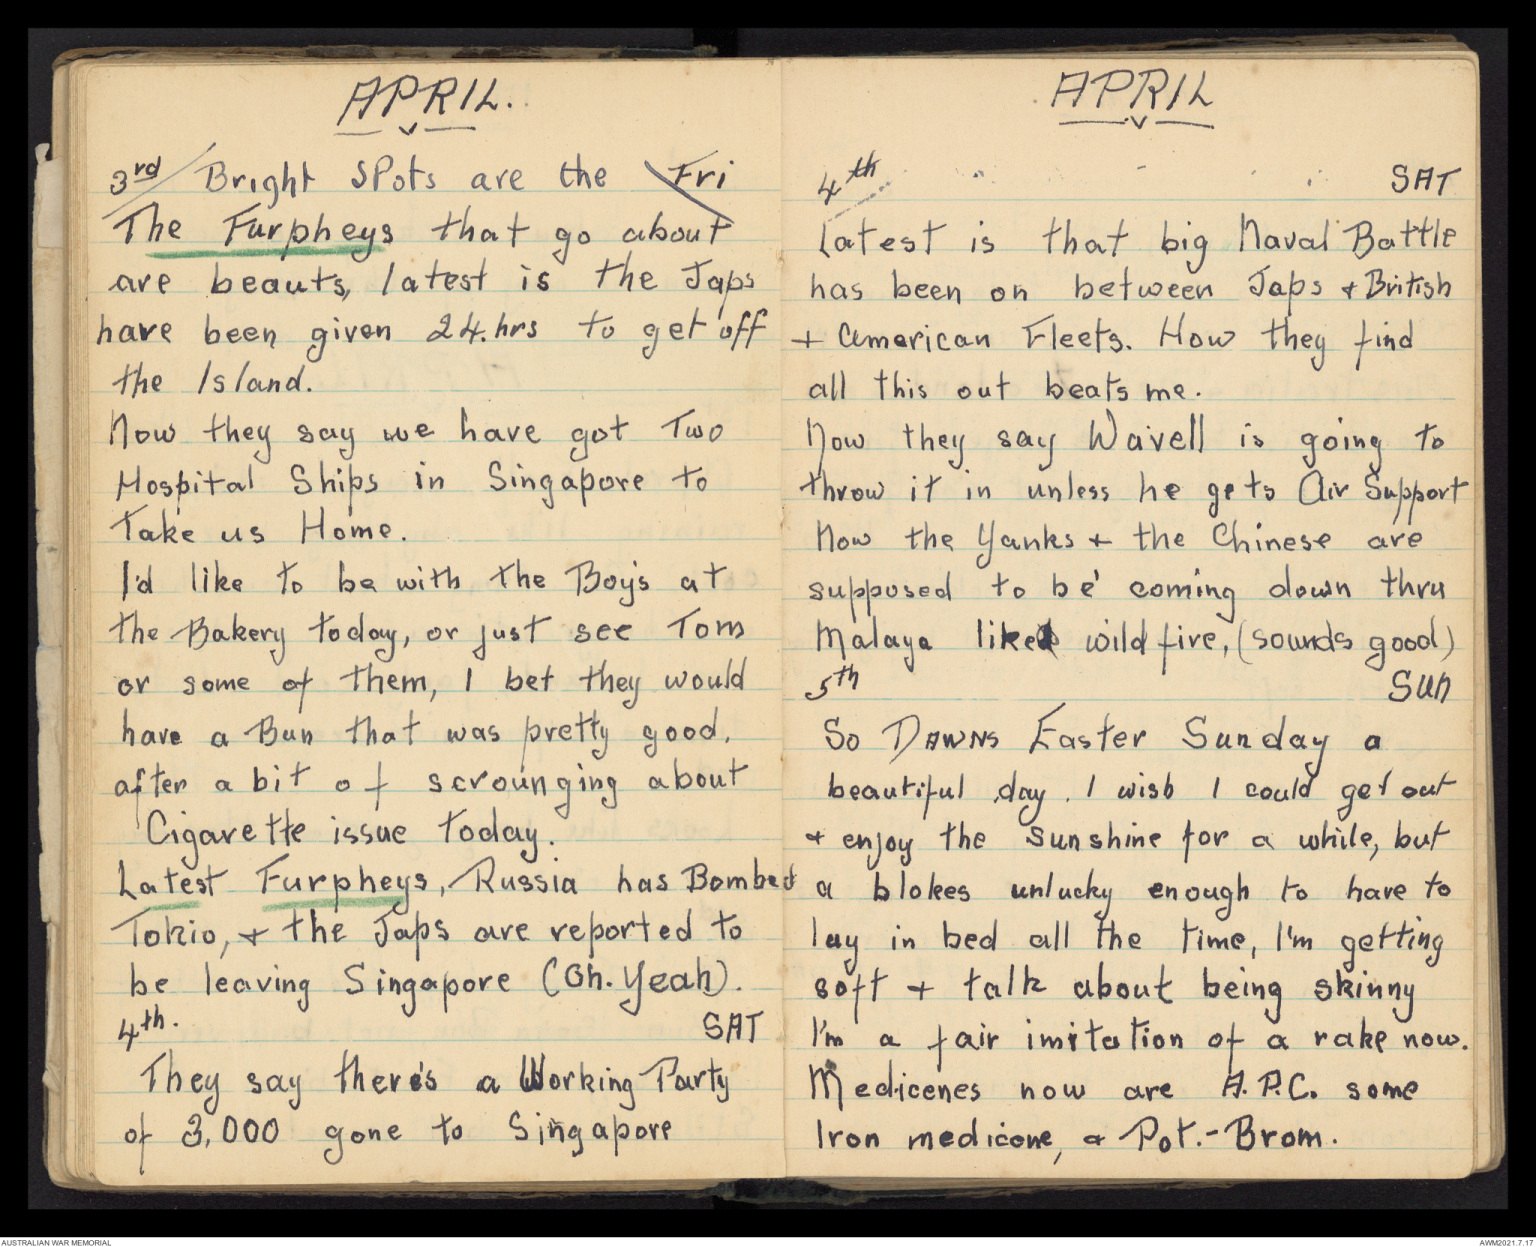 APRIL.
3rd/ Bright Spots are the Fri
The Furpheys that go about
are beauts, latest is the Japs
have been given 24.hrs to get off
the Island.
Now they say we have got Two
Hospital Ships in Singapore to
Take us Home.
I'd like to be with the Boys at
the Bakery today, or just see Tom
or some of them, I bet they would
have a Bun that was pretty good,
after a bit of scrounging about
Cigarette issue today.
Latest Furpheys, Russia has Bombed
Tokio, + the Japs are reported to
be leaving Singapore (Oh. Yeah).
4th. SAT
They say there's a Working Party
of 3,000 gone to Singapore
APRIL
4th SAT
Latest is that big Naval Battle
has been on between Japs + British
+ American Fleets. How they find
all this out beats me.
Now they say Wavell is going to
throw it in unless he gets Air Support
Now the Yanks + the Chinese are
supposed to be coming down thru
Malaya like wild fire, (sounds good)
5th SUN
So DAWNS Easter Sunday a
beautiful day. I wish I could get out
+ enjoy the sunshine for a while, but
a blokes unlucky enough to have to
lay in bed all the time, I'm getting
soft + talk about being skinny
I'm a fair imitation of a rake now.
Medicenes now are A.P.C. some
Iron medicone, + Pot.-Brom.
AUSTRALIAN WAR MEMORIAL
AWM2021.7.17